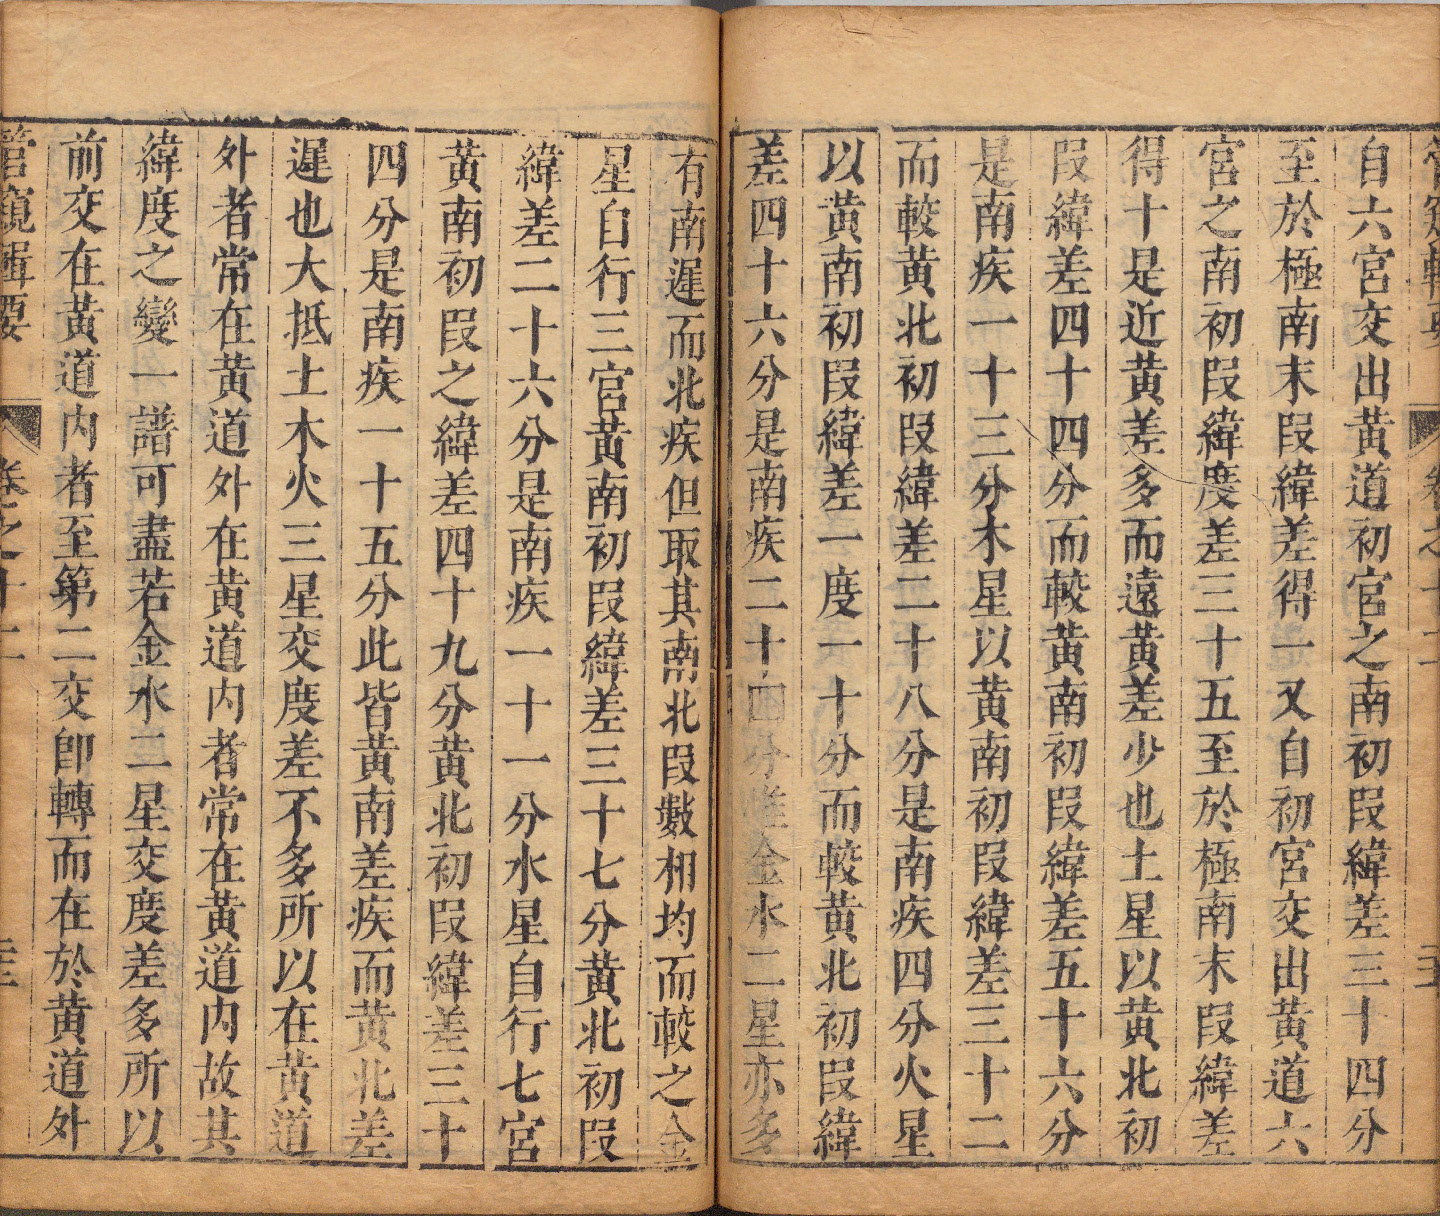 管窺輯要 卷之十二
自六宮交出黃道初宮之南初叚緯差三十四分
至於極南末叚緯差得一又自初宮交出黃道六
宮之南初叚緯度差三十五至於極南末叚緯差
得十是近黃差多而遠黃差少也土星以黃北初
叚緯差四十四分而較黃南初叚緯差五十六分
是南疾一十三分木星以黃南初叚緯差三十二
而較黃北初叚緯差二十八分是南疾四分火星
以黃南初叚緯差一度一十分而較黃北初叚緯
差四十六分是南疾二十四分惟金水二星亦多
有南遲而北疾但取其南北叚數相均而較之金
星自行三宮黃南初叚緯差三十七分黃北初叚
緯差二十六分是南疾一十一分水星自行七宮
黃南初叚之緯差四十九分黃北初叚緯差三十
四分是南疾一十五分此皆黃南差疾而黃北差
遲也大抵土木火三星交度差不多所以在黃道
外者常在黃道外在黃道内者常在黃道内故其
緯度之變一譜可盡若金水二星交度差多所以
前交在黃道内者至第二交卽轉而在於黃道外
管窺輯要 卷之十二